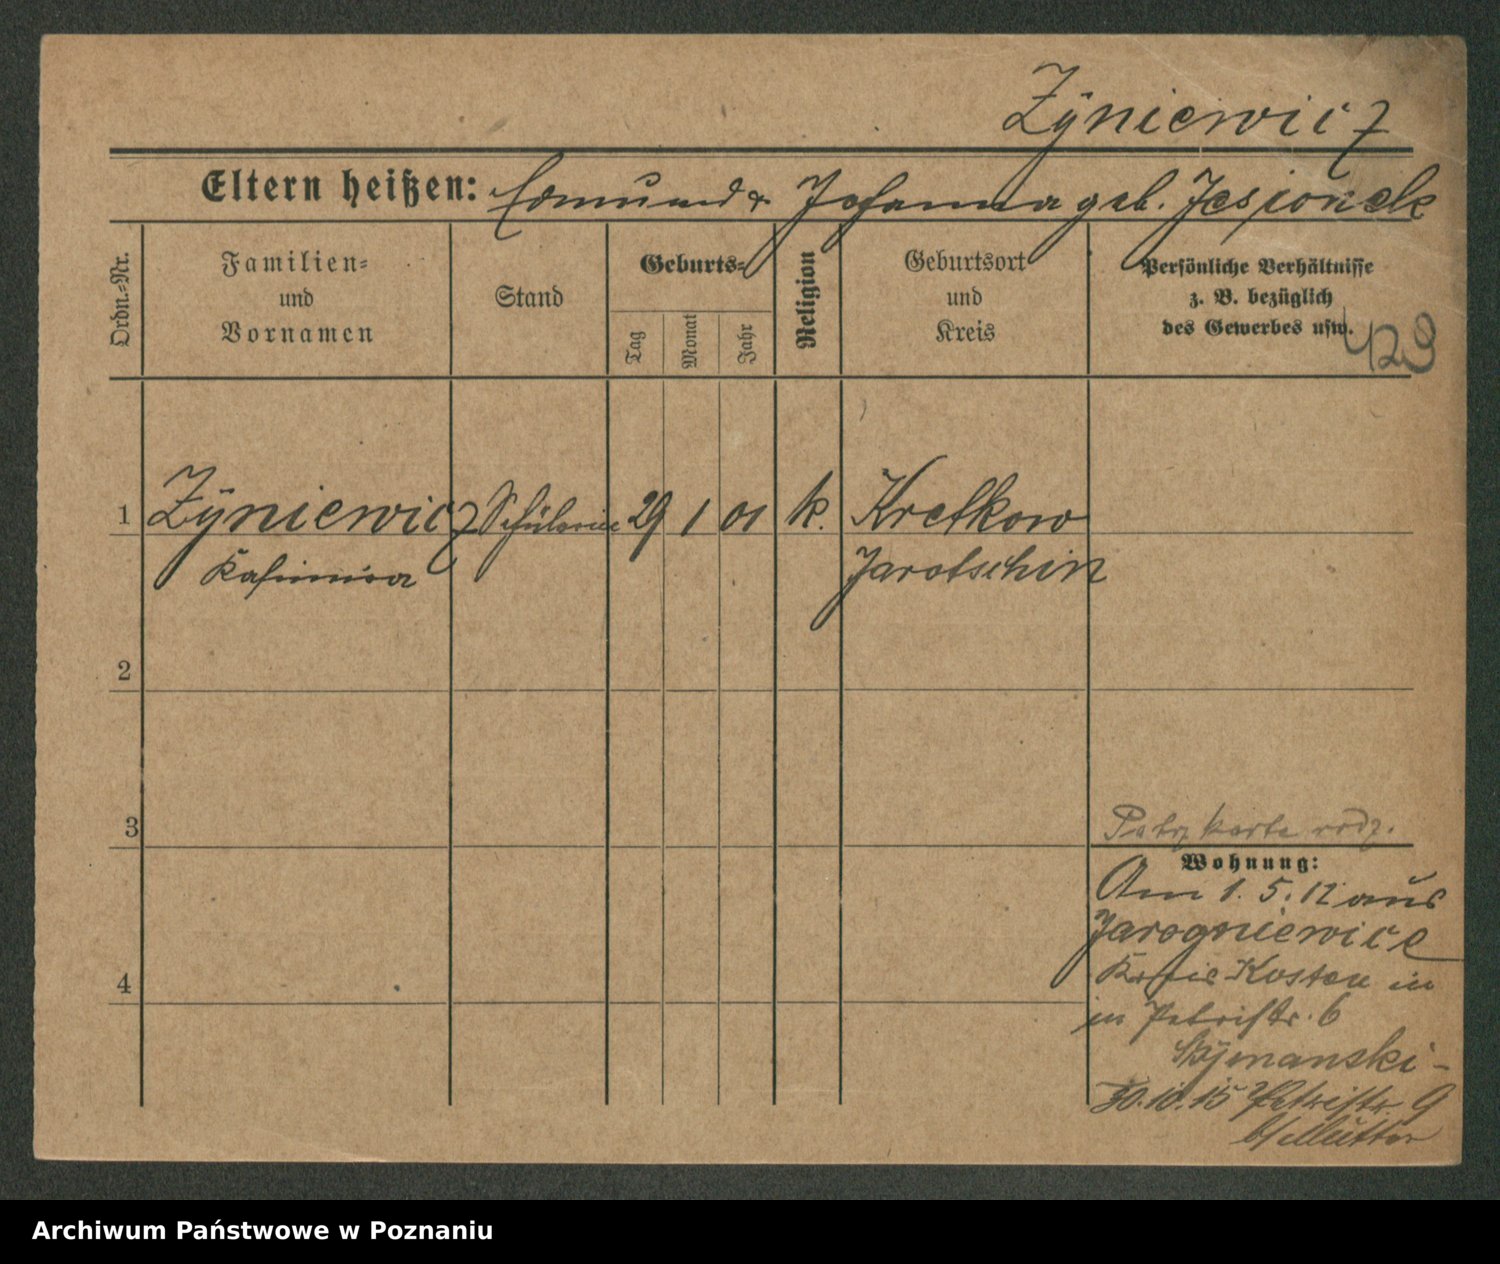 Zÿniewicz
Eltern heißen: Edmund & Johanna geb. Jesjonek
Ordn.-Nr.
Familien-
und
Vornamen
Stand
Geburts-
Tag
Monat
Jahr
Religion
Geburtsort
und
Kreis
Persönliche Verhältnisse
z. B. bezüglich
des Gewerbes usw.
423
1 Zÿniewicz Schülerin 29 1 01 k. Kretkow
Kasimira Jarotschin
2
3
Patrz karta rodz.
Wohnung:
Am 1. 5. 12 aus
Jarogniewice
Kreis Kosten in
4
in Petristr. 6
Szÿmanski -
30.10.15 Petristr. 9
b/ Mutter
Archiwum Państwowe w Poznaniu